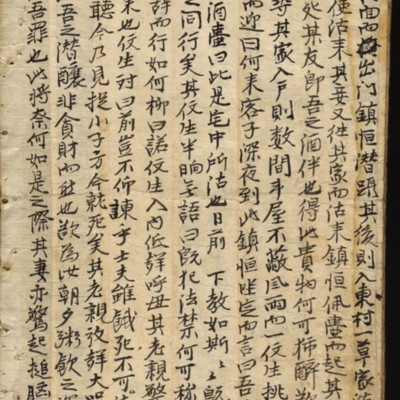 面而出門鎮恒潛踵其後則入東村一草家
使沽来其妾又往其家而沽来鎮恒佩壺而起其
処其友郎吾之酒伴也得此貴物何可独醉
其家入戶則数間斗屋不蔽風雨而一仗生挑
而迎曰何来客子深夜到此鎮恒坐定而言曰吾
酒壺曰此是宅中所沽也日前 下教如斯
之同行矣其仗生半晌無語曰旣犯法禁何可称
辞而行如何柳曰諾仗生入内低聲呼母其老親驚
来也仗生対曰前豈不仰諫乎士夫雖餓死不可
聽今乃見捉小子方今就死矣其老親放聲大哭
吾之潛釀非貪財而然也欲為汝朝夕粥飲之
吾罪也此將奈何如是之際其妻亦驚起搥胸